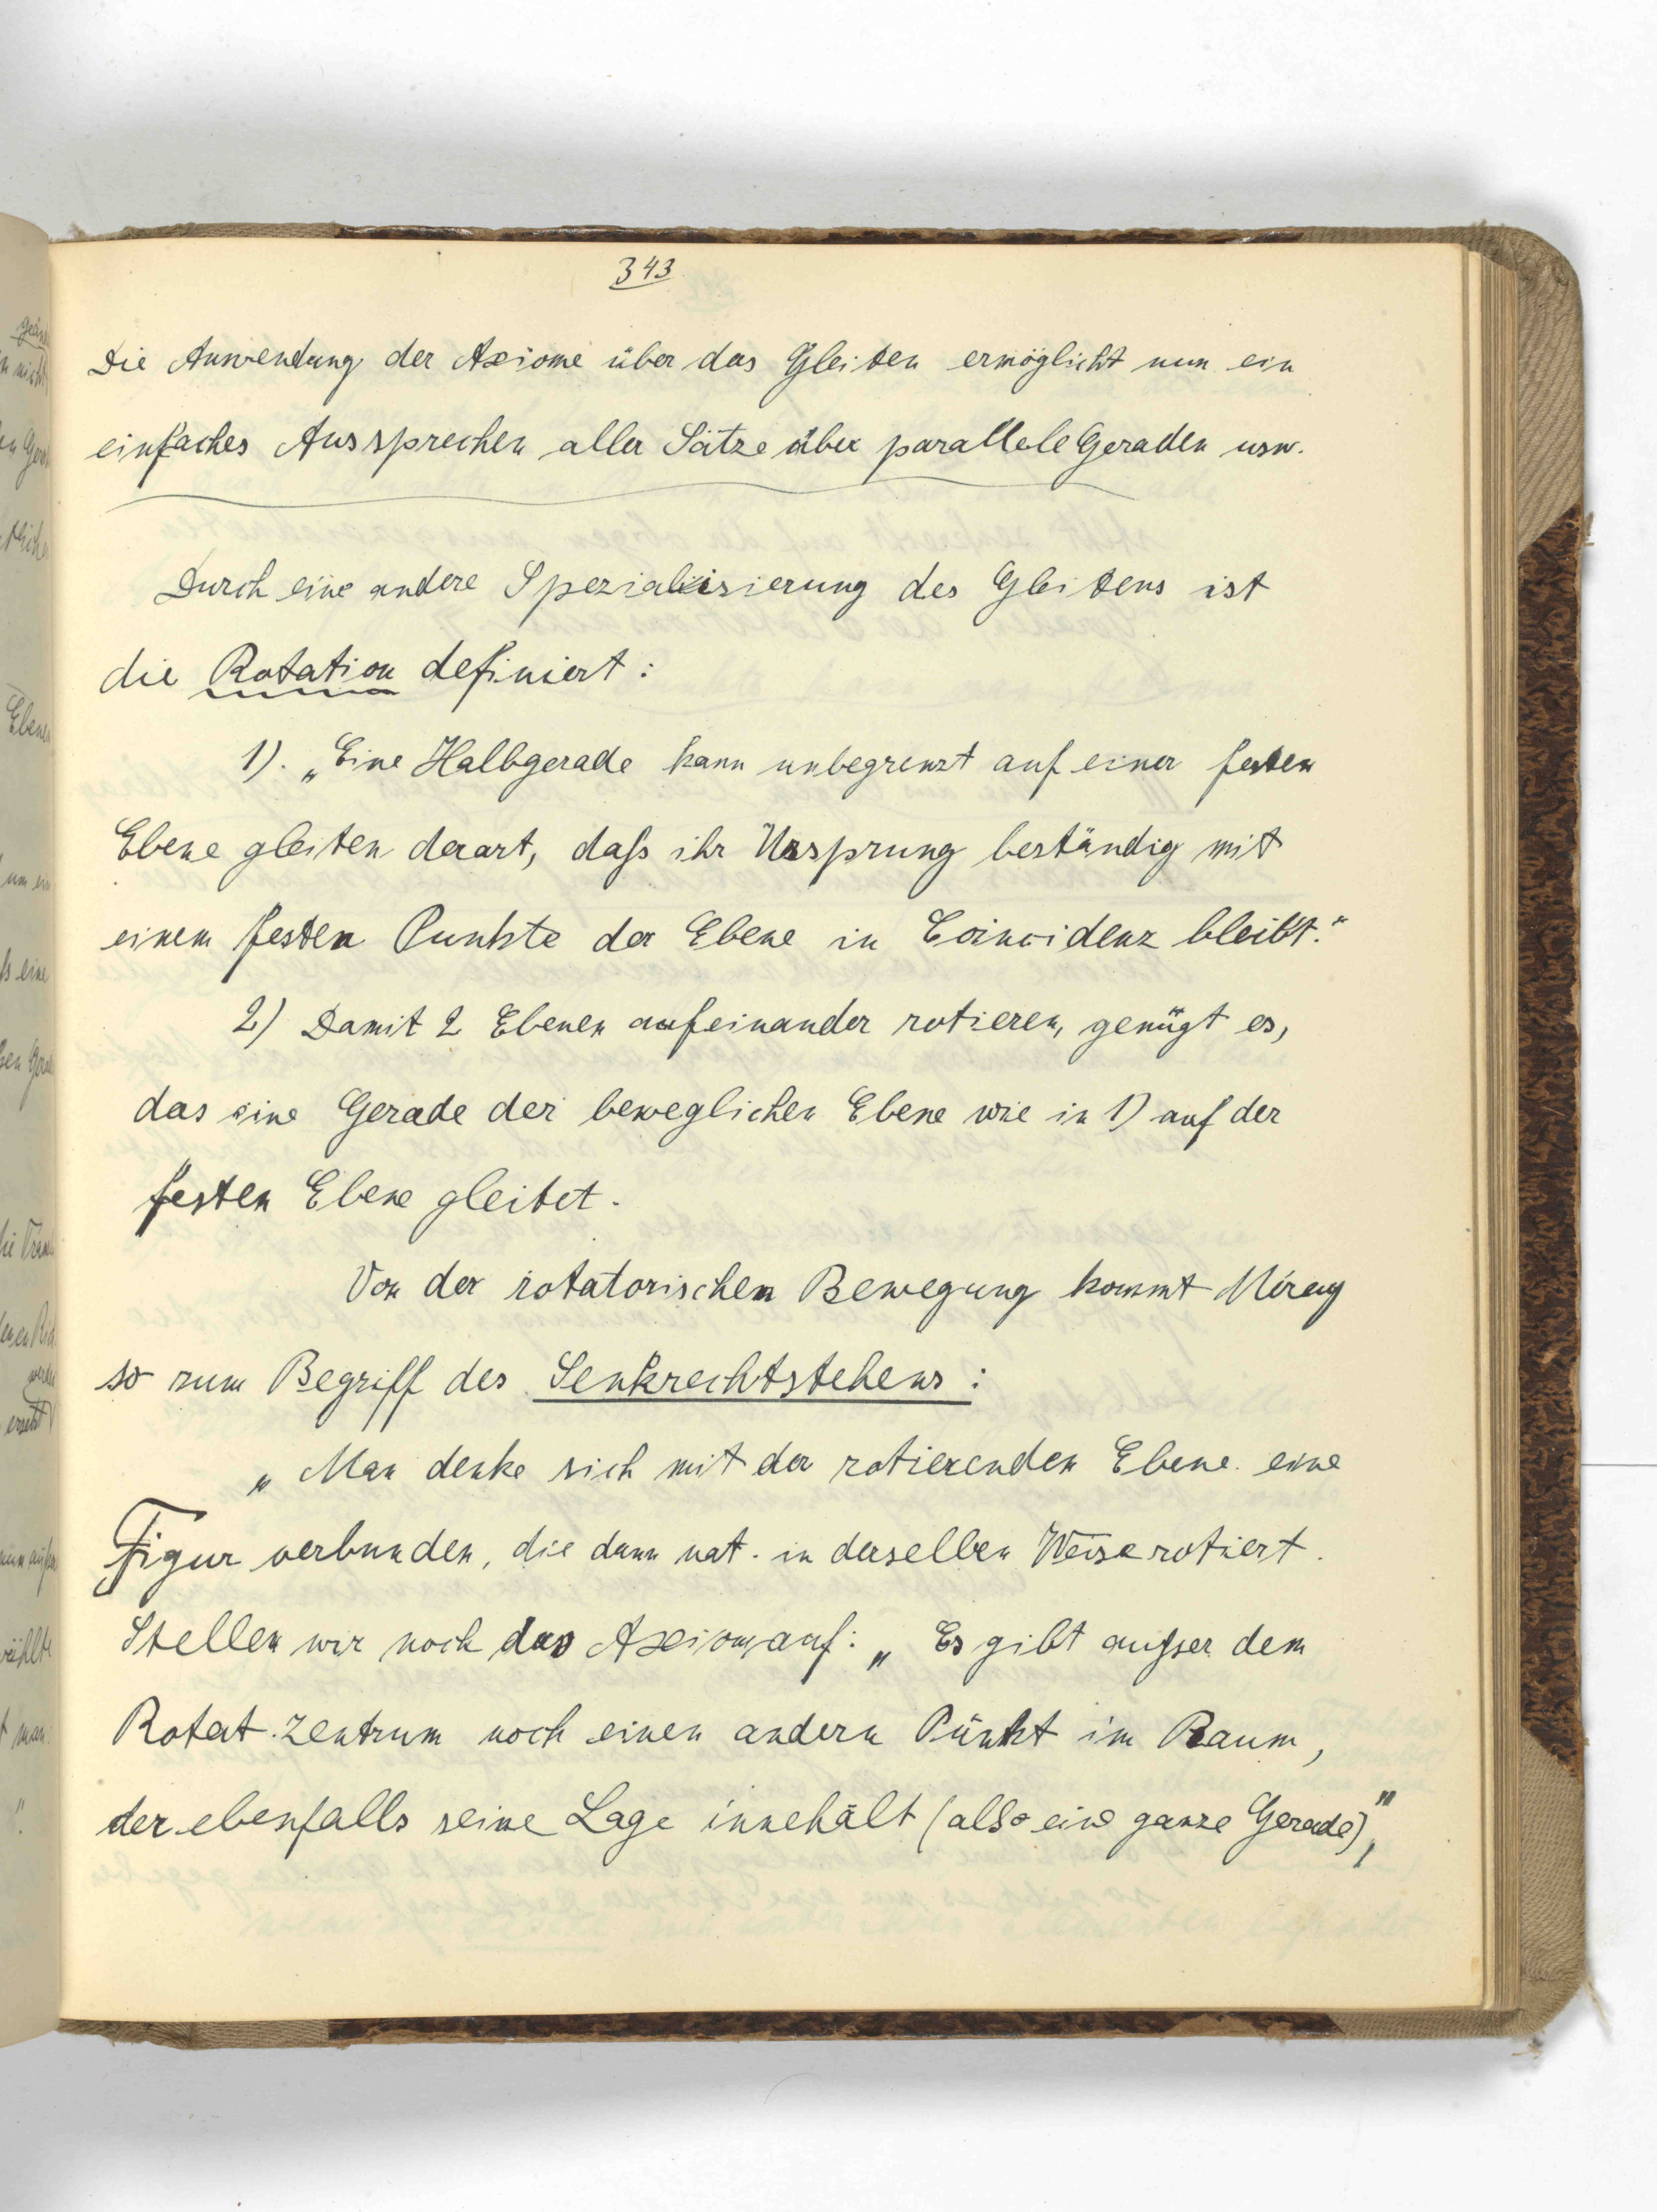 343
Die Anwendung der Axiome über das Gleiten ermöglicht nun ein
einfaches Aussprechen aller Sätze über parallele Geraden usw.
Durch eine andere Spezialisierung des Gleitens ist
die Rotation definiert:
1). „Eine Halbgerade kann unbegrenzt auf einer festen
Ebene gleiten derart, daſs ihr Ursprung beständig mit
einem festen Punkte der Ebene in Coincidenz bleibt."
2) Damit 2 Ebenen aufeinander rotieren, genügt es,
das eine Gerade der beweglichen Ebene wie in 1) auf der
festen Ebene gleitet.
Von der rotatorischen Bewegung kommt Méray
so zum Begriff des Senkrechtstehens:
„Man denke sich mit der rotierenden Ebene eine
Figur verbunden, die dann nat. in derselben Weise rotiert.
Stellen wir noch das Axiom auf: „Es gibt auſser dem
Rotat. zentrum noch einen andern Punkt im Raum,
der ebenfalls seine Lage innehält (also eine ganze Gerade)",